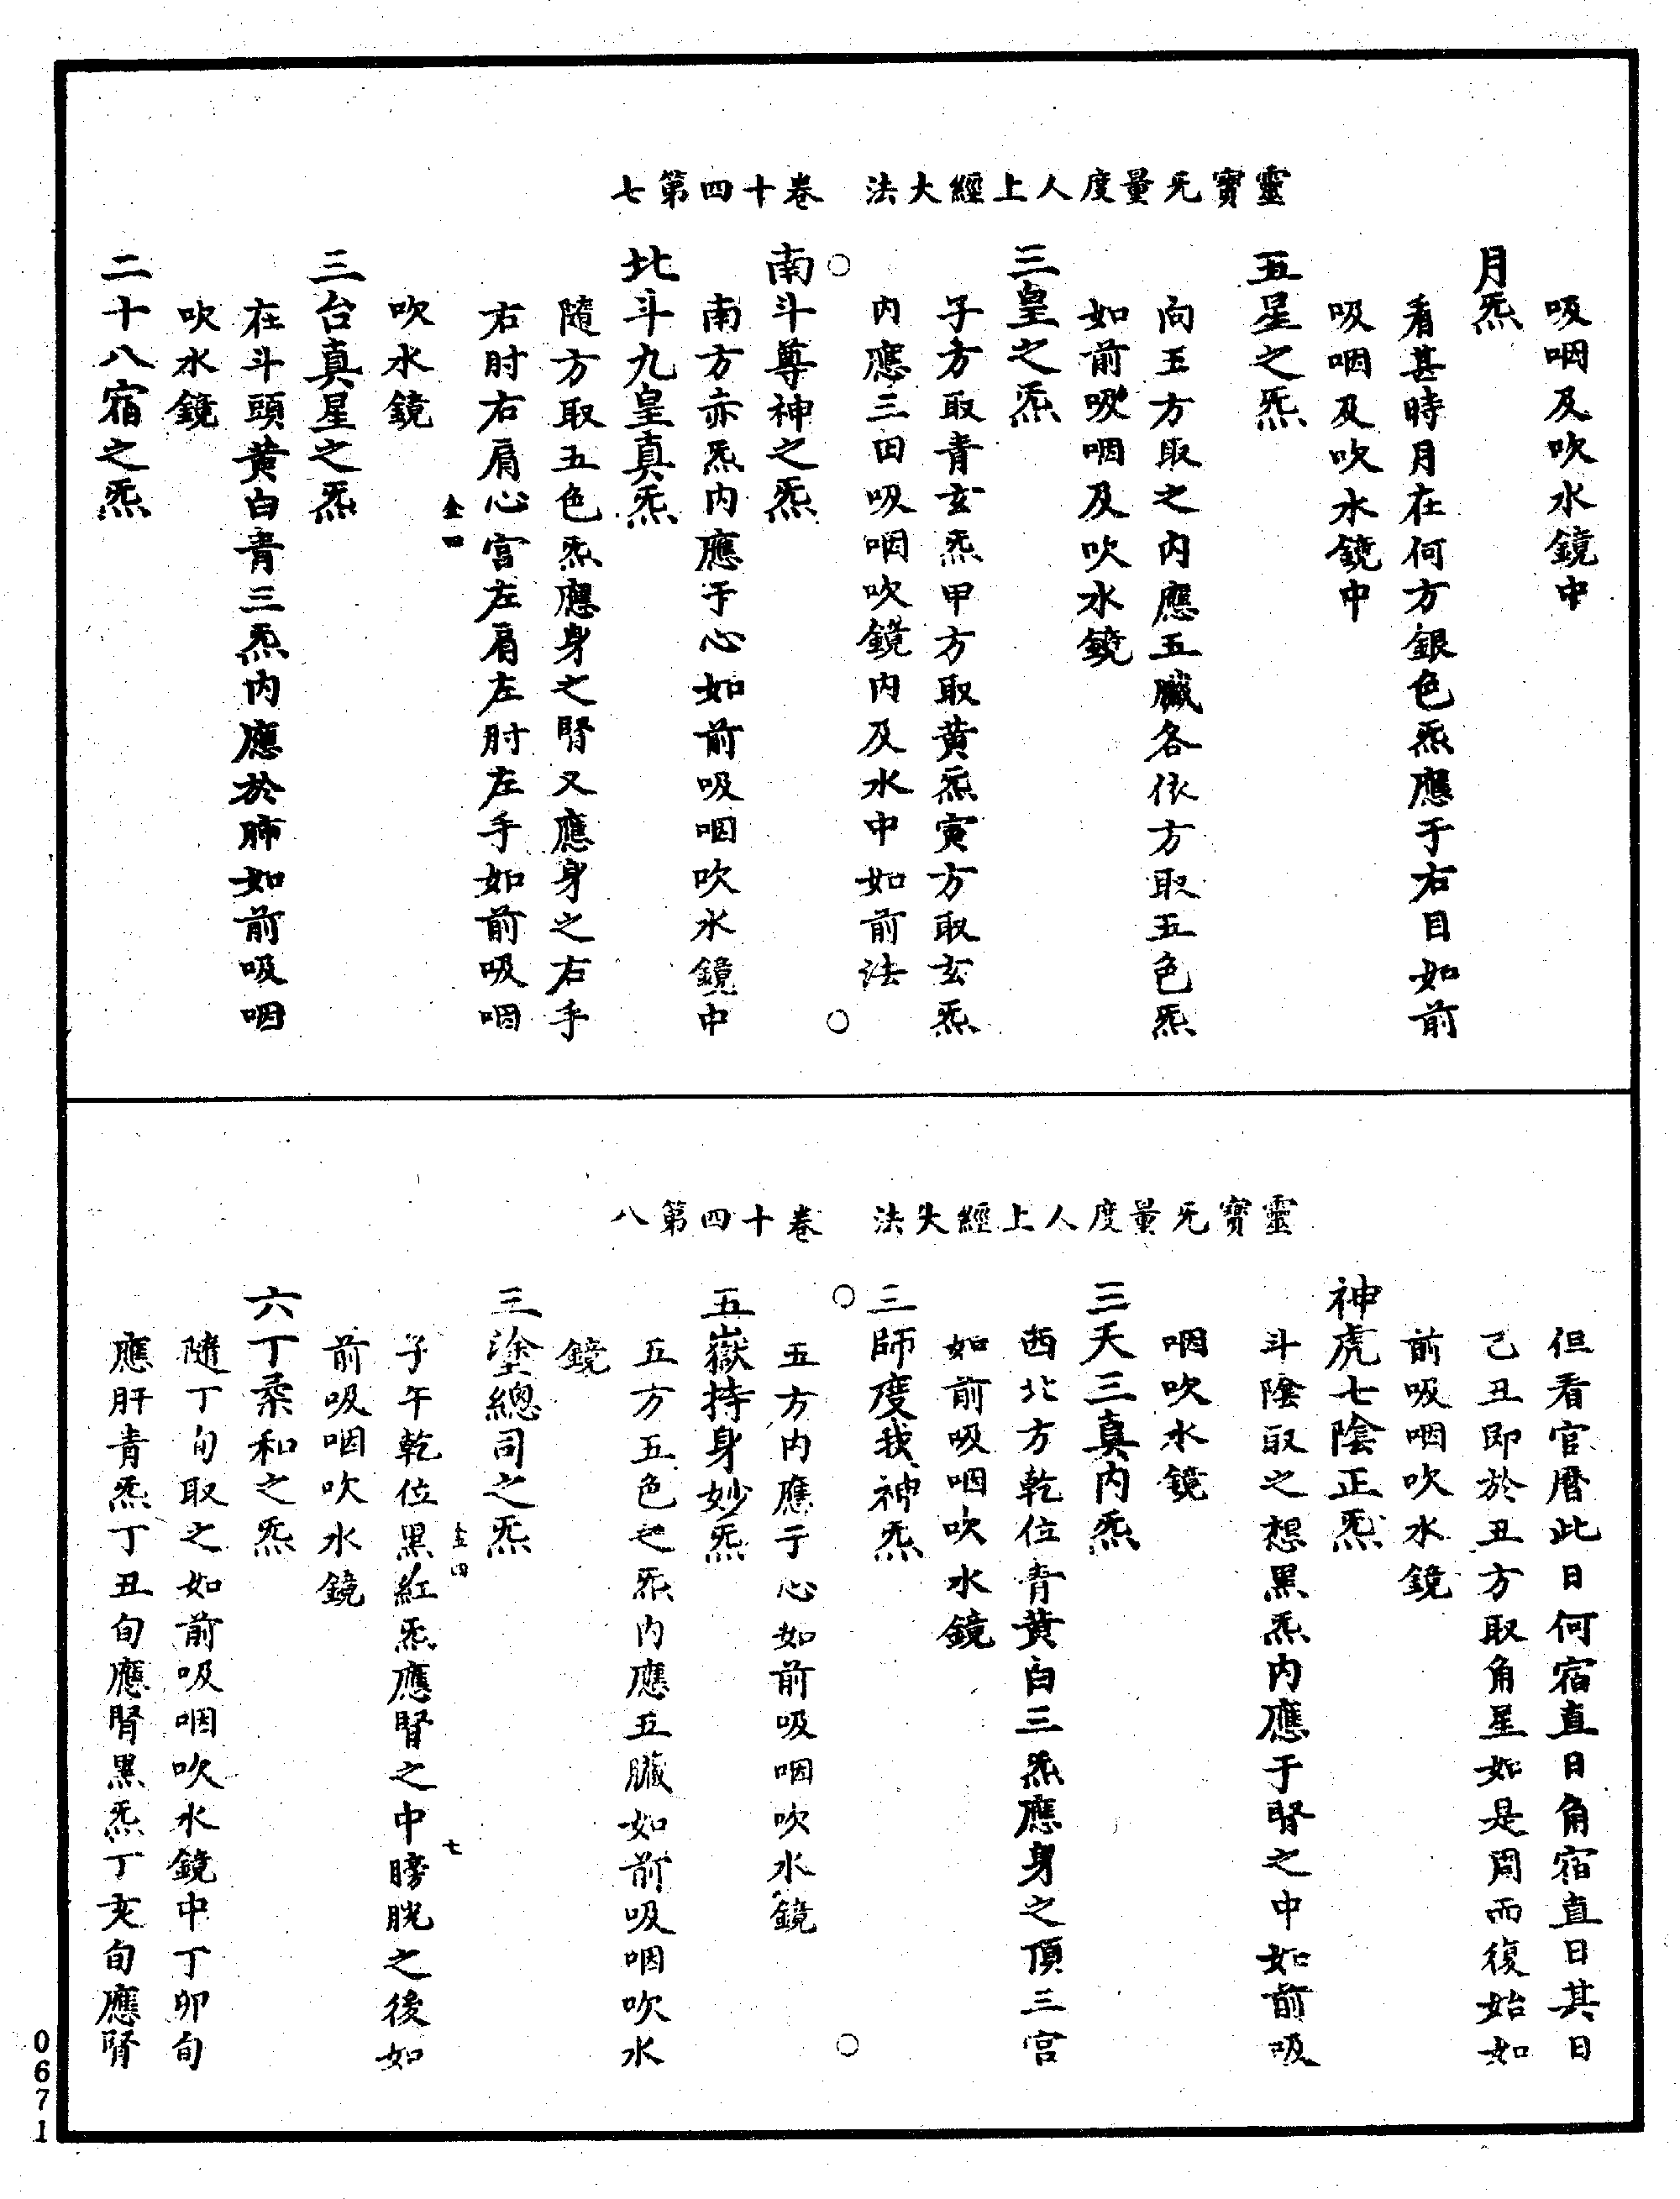 靈寶无量度人上經大法　卷十四第七
吸咽及吹水鏡中
月炁
看甚時月在何方銀色炁應于右目如前
吸咽及吹水鏡中
五星之炁
向五方取之内應五臟各依方取五色炁
如前吸咽及吹水鏡
三皇之炁
子方取青玄炁甲方取黄炁寅方取玄炁
内應三田吸咽吹鏡内及水中如前法
南斗尊神之炁
南方赤炁内應于心如前吸咽吹水鏡中
北斗九皇真炁
隨方取五色炁應身之腎又應身之右手
右肘右肩心宫左肩左肘左手如前吸咽
金四
吹水鏡
三台真星之炁
在斗頭黄白青三炁内應於肺如前吸咽
吹水鏡
二十八宿之炁
靈寶无量度人上經大法　卷十四第八
但看官曆此日何宿直日角宿直日其日
己丑即於丑方取角星如是周而復始如
前吸咽吹水鏡
神虎七陰正炁
斗陰取之想黑炁内應于腎之中如前吸
咽吹水鏡
三天三真内炁
西北方乾位青黄白三炁應身之頂三宫
如前吸咽吹水鏡
三師度我神炁
五方内應于心如前吸咽吹水鏡
五嶽持身妙炁
五方五色之炁内應五臟如前吸咽吹水
鏡
三塗總司之炁
金四　七
子午乾位黑紅炁應腎之中膀胱之後如
前吸咽吹水鏡
六丁柔和之炁
隨丁旬取之如前吸咽吹水鏡中丁卯旬
應肝青炁丁丑旬應腎黑炁丁亥旬應腎
0671